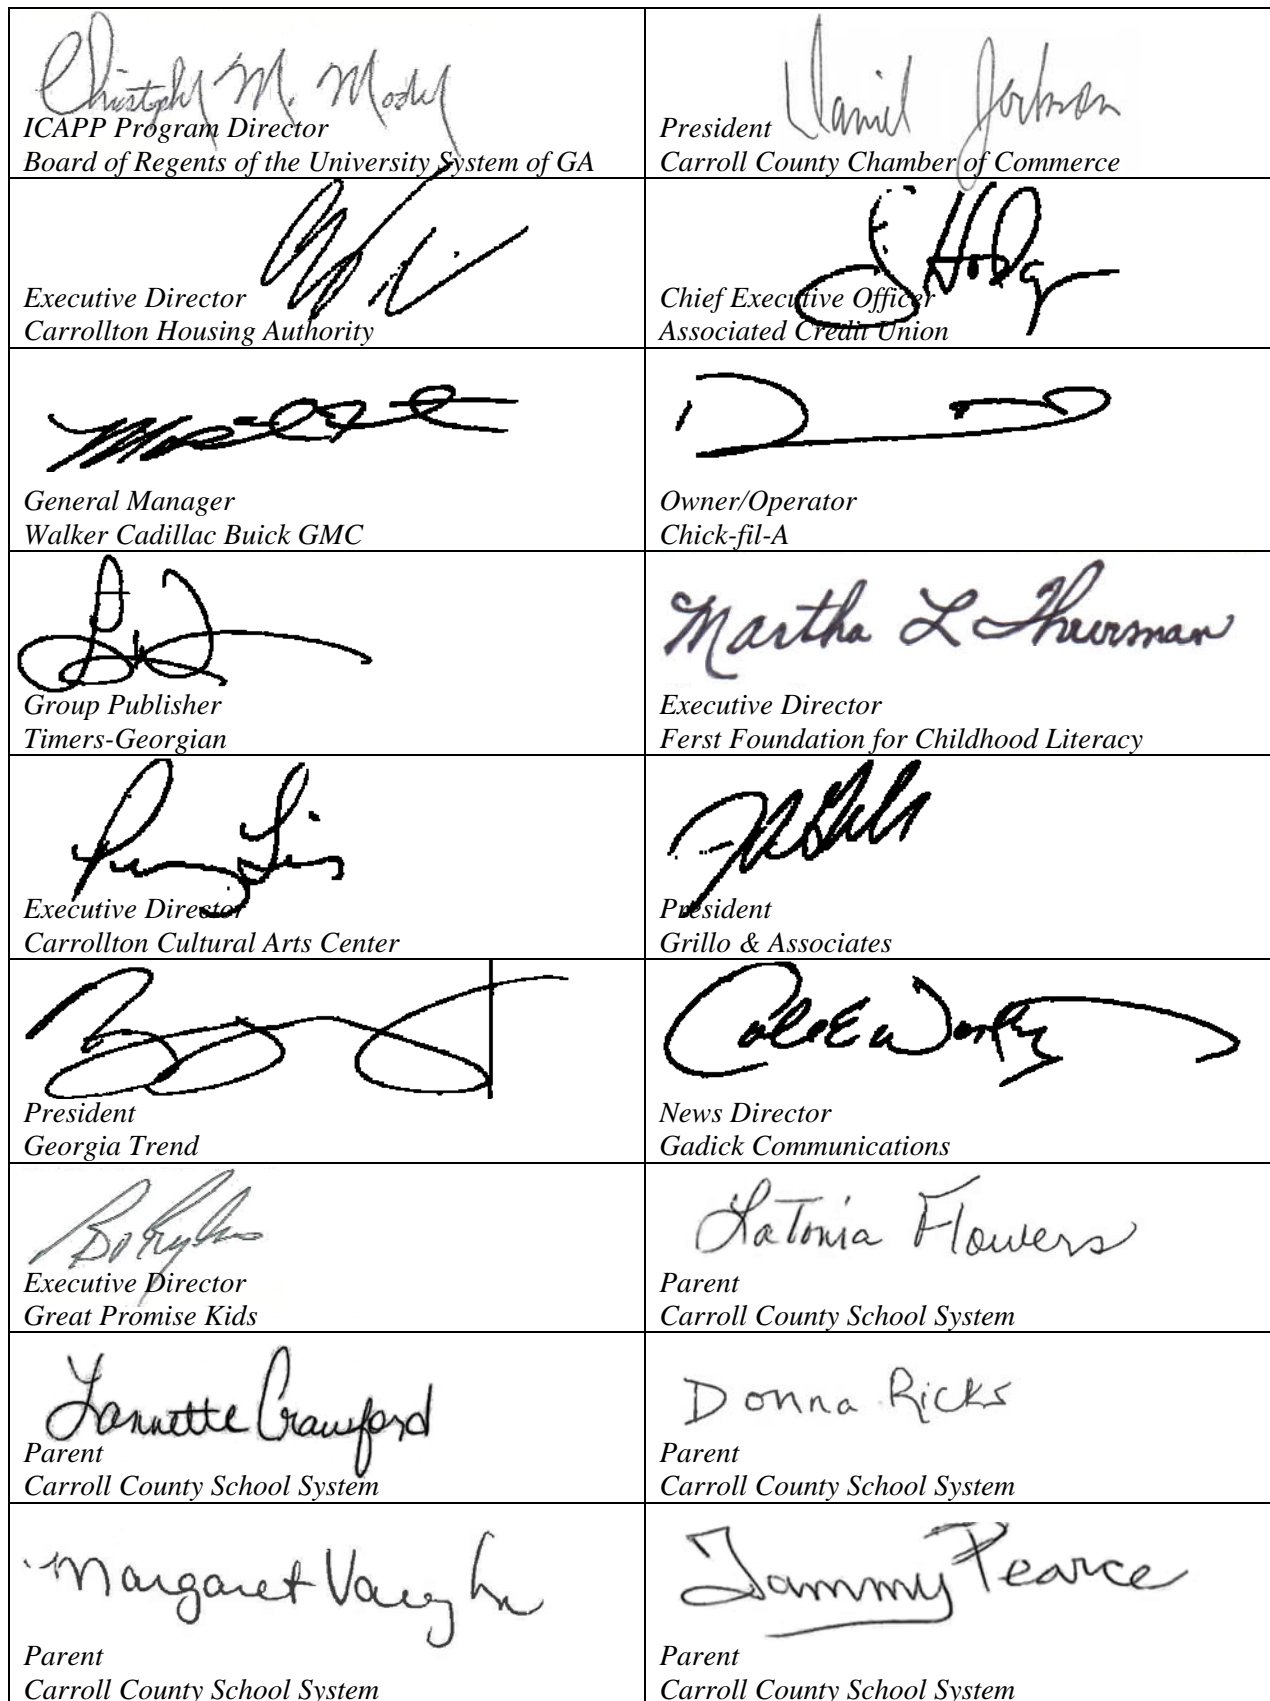 Christopher M. Mosley
ICAPP Program Director
Board of Regents of the University System of GA
Daniel Jackson
President
Carroll County Chamber of Commerce
Executive Director
Carrollton Housing Authority
Chief Executive Officer
Associated Credit Union
General Manager
Walker Cadillac Buick GMC
Owner/Operator
Chick-fil-A
Group Publisher
Timers-Georgian
Martha L Thurman
Executive Director
Ferst Foundation for Childhood Literacy
Executive Director
Carrollton Cultural Arts Center
President
Grillo & Associates
President
Georgia Trend
News Director
Gadick Communications
Executive Director
Great Promise Kids
LaTonia Flowers
Parent
Carroll County School System
Lannette Crawford
Parent
Carroll County School System
Donna Ricks
Parent
Carroll County School System
Margaret Vaughn
Parent
Carroll County School System
Tammy Pearce
Parent
Carroll County School System